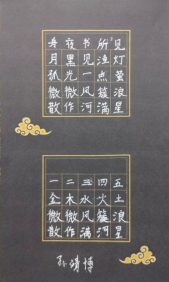 舟夜书所见
月黑见渔灯
孤光一点萤
微微风簇浪
散作河满星
一二三四五
金木水火土
微微风簇浪
散作满河星
孙靖博